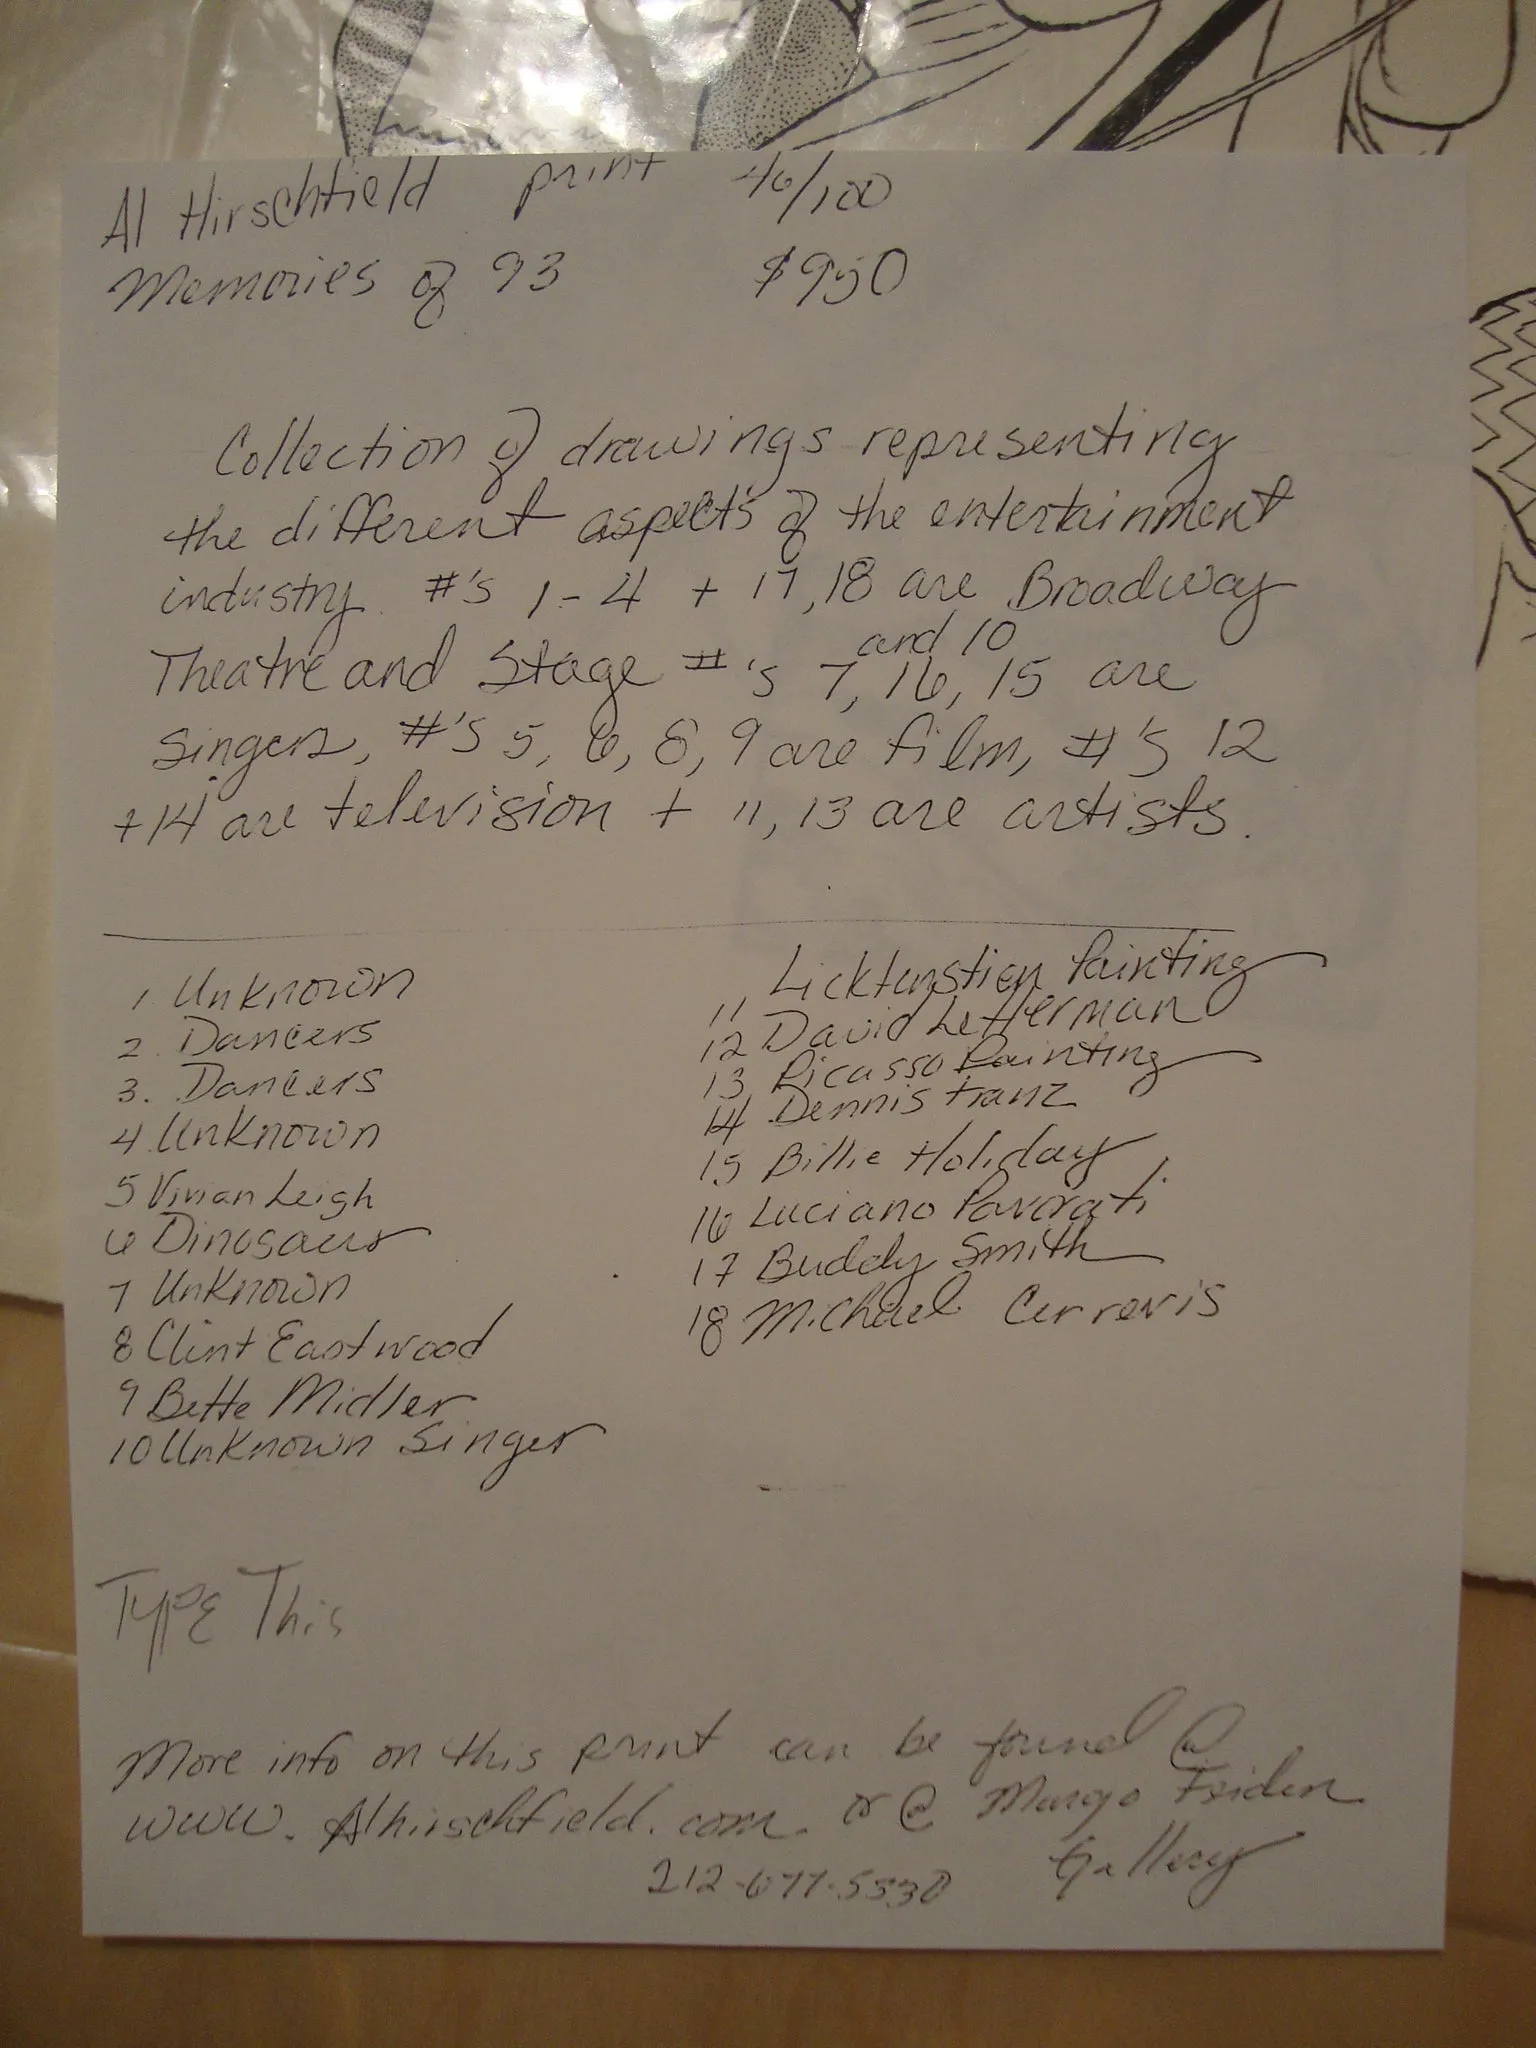 Al Hirschfield print 46/100
Memories of 93 $950
Collection of drawings representing
the different aspects of the entertainment
industry. #'s 1-4 + 17,18 are Broadway
and 10
Theatre and Stage #'s 7, 16, 15 are
singers, #'s 5, 6, 8, 9 are film, #'s 12
+14 are television + 11, 13 are artists.
1 Unknown
2. Dancers
3. Dancers
4 Unknown
5 Vivian Leigh
6 Dinosaur
7 Unknown
8 Clint Eastwood
9 Bette Midler
10 Unknown Singer
11, Licktenstien Painting
12 David Letterman
13 Picasso Painting
14 Dennis Franz
15 Billie Holiday
16 Luciano Pavorati
17 Buddy Smith
18 Michael Cerrevis
TYPE This
More info on this print can be found @
www.Alhirschfield.com. or @ Margo Feiden
Gallery
212-677-5530